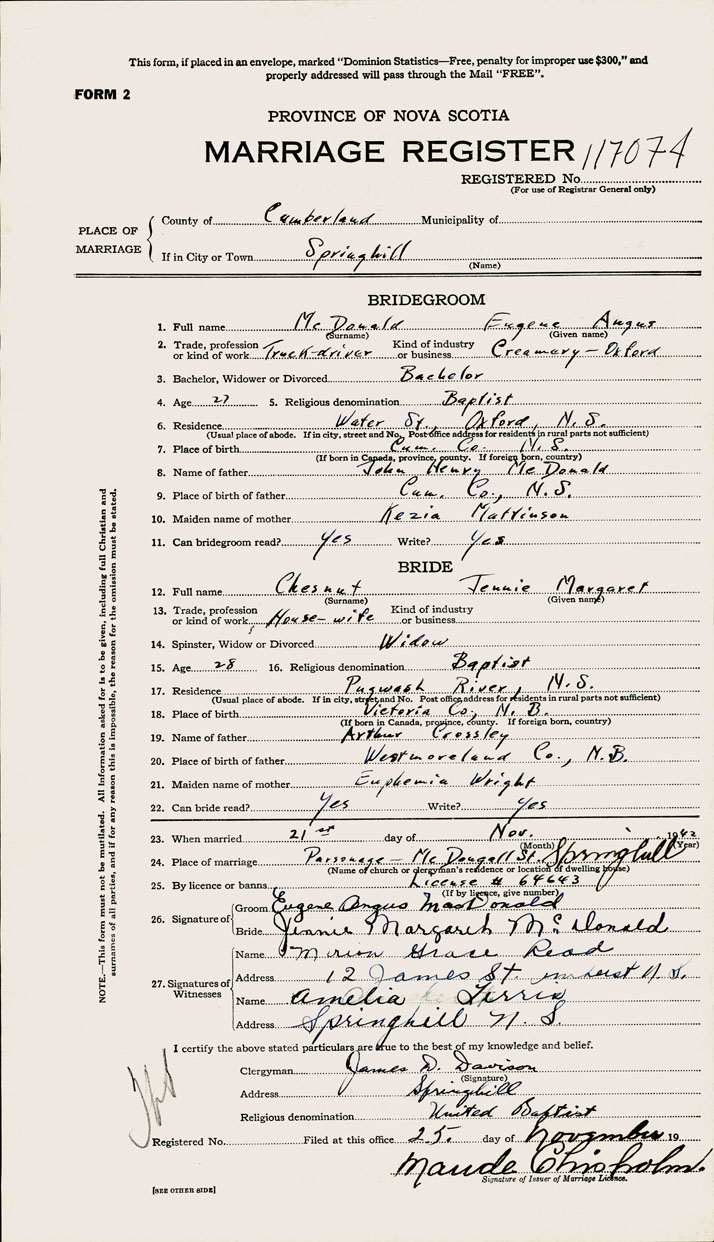 This form, if placed in an envelope, marked “Dominion Statistics—Free, penalty for improper use $300,” and
properly addressed will pass through the Mail “FREE”.
FORM 2
PROVINCE OF NOVA SCOTIA
MARRIAGE REGISTER 117074
REGISTERED No.
(For use of Registrar General only)
PLACE OF MARRIAGE
County of Cumberland Municipality of
If in City or Town Springhill
(Name)
BRIDEGROOM
1. Full name McDonald Eugene Angus
(Surname) (Given name)
2. Trade, profession or kind of work Truck-driver Kind of industry or business Creamery – Oxford
3. Bachelor, Widower or Divorced Bachelor
4. Age 27 5. Religious denomination Baptist
6. Residence Water St., Oxford, N.S.
(Usual place of abode. If in city, street and No. Post office address for residents in rural parts not sufficient)
7. Place of birth Cum. Co. N.S.
(If born in Canada, province, county. If foreign born, country)
8. Name of father John Henry McDonald
9. Place of birth of father Cum. Co., N.S.
10. Maiden name of mother Kezia Mattinson
11. Can bridegroom read? Yes Write? Yes
BRIDE
12. Full name Chesnut Jennie Margaret
(Surname) (Given name)
13. Trade, profession or kind of work House-wife Kind of industry or business
14. Spinster, Widow or Divorced Widow
15. Age 28 16. Religious denomination Baptist
17. Residence Pugwash River, N.S.
(Usual place of abode. If in city, street and No. Post office address for residents in rural parts not sufficient)
18. Place of birth Victoria Co., N.B.
(If born in Canada, province, county. If foreign born, country)
19. Name of father Arthur Crossley
20. Place of birth of father Westmoreland Co., N.B.
21. Maiden name of mother Euphemia Wright
22. Can bride read? Yes Write? Yes
23. When married 21st day of Nov. 1942
(Month) (Year)
24. Place of marriage Parsonage – McDougall St. Springhill
(Name of church or clergyman's residence or location of dwelling house)
25. By licence or banns License # 64643
(If by licence, give number)
26. Signature of
Groom Eugene Angus MacDonald
Bride Jennie Margaret McDonald
27. Signatures of Witnesses
Name Grace Read
Address 12 James St Amherst N.S.
Name Amelia Ferris
Address Springhill N.S.
I certify the above stated particulars are true to the best of my knowledge and belief.
Clergyman James D. Davison
(Signature)
Address Springhill
Religious denomination United Baptist
Registered No. Filed at this office 25. day of November 19
Maude Chisholm.
Signature of Issuer of Marriage Licence.
[SEE OTHER SIDE]
NOTE.—This form must not be mutilated. All information asked for is to be given, including full Christian and
surnames of all parties, and if for any reason this is impossible, the reason for the omission must be stated.